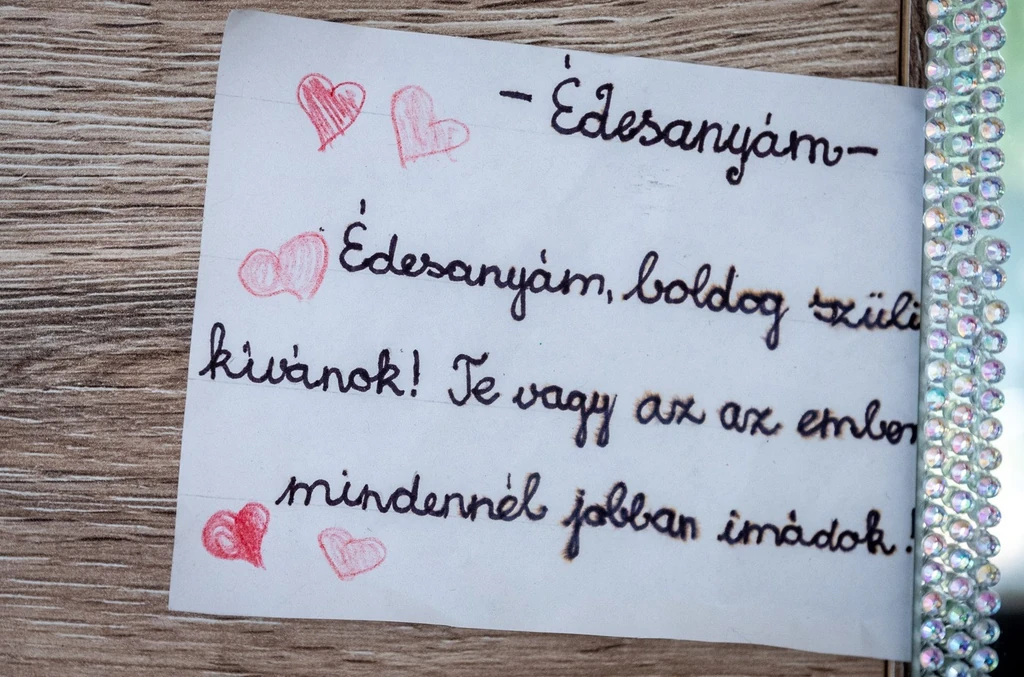 - Édesanyám -
Édesanyám, boldog szüli
kívánok! Te vagy az az ember
mindennél jobban imádok!